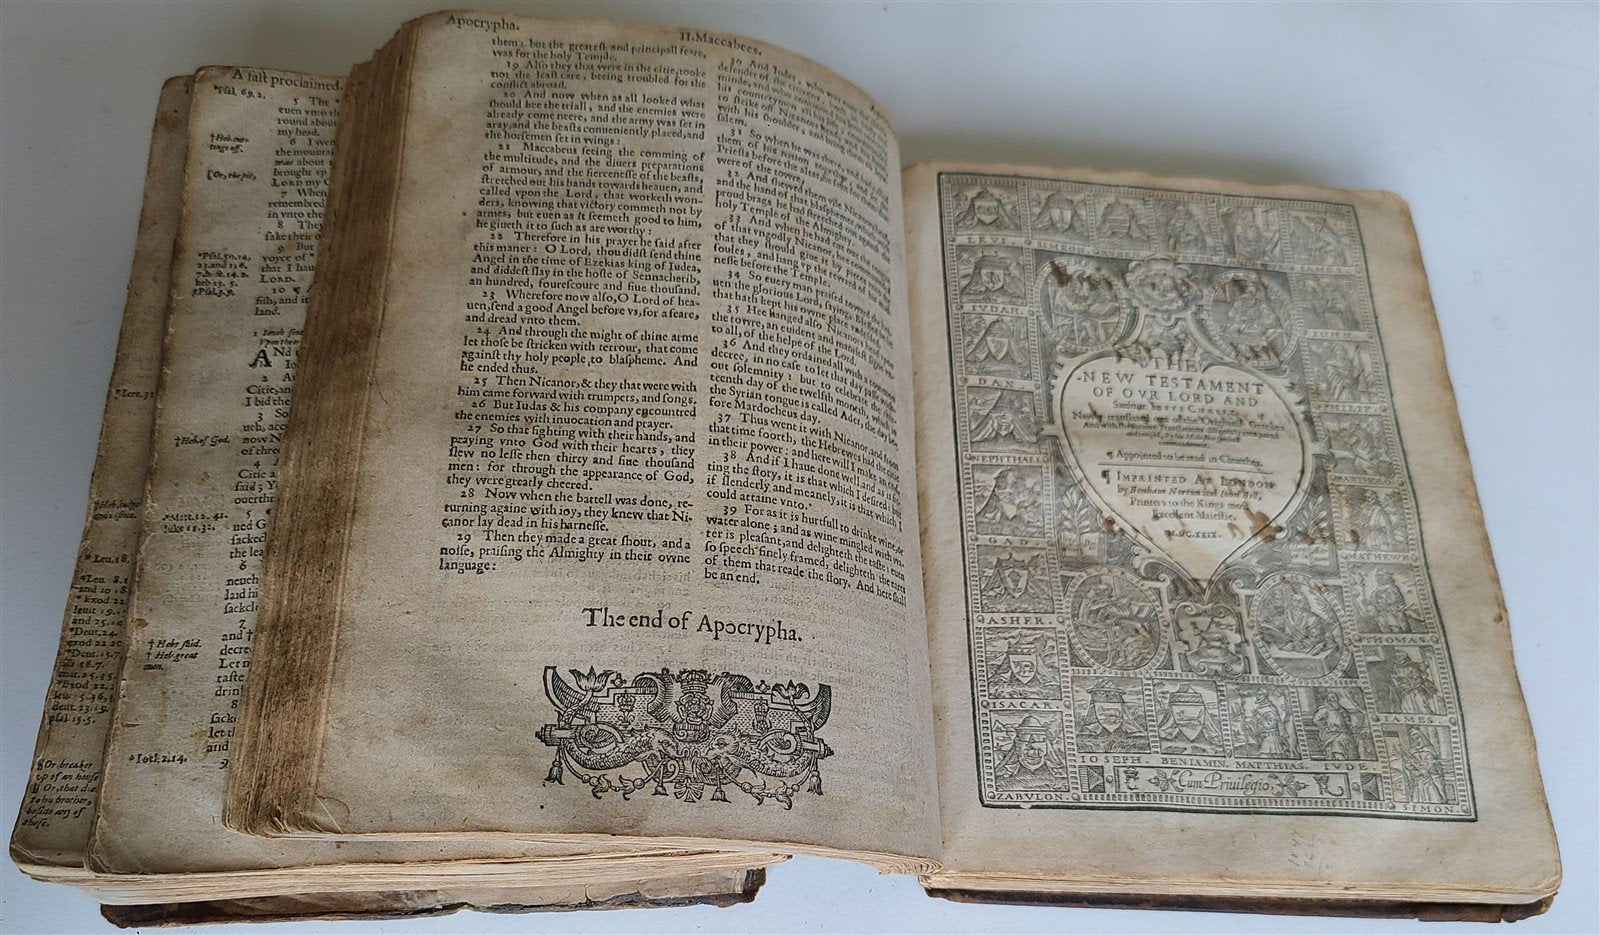 A fast proclaimed.
*Psal. 69.2.
5 The
euen vnto th
round about
my head.
† Heb. cut-
tings off.
6 I wen
the mountai
was about
brought vp
LORD my G
‖Or, the pit,
7 When
remembred
in vnto the
8 They
sake their o
9 But
voyce of
that I haue
LORD.
*Psal. 50.14,
23. and 116.
heb 13. 5.
*Psal. 3. 9.
10 ¶ A
fish, and i
land.
ANd
2 Ar
Citie, an
I bid the
3 So
† Heb. of God.
now N
of three
4 A
Citie a
said; Y
ouerthr
*Matt. 12. 41.
luke 11. 32.
5
ued G
sackcl
the lea
6
neueh
laid hi
sackcl
7
and †
† Hebr said.
† Heb. great
men,
decre
Let n
taste
drin
8
sack
let t
and
*Ioel. 2. 14.
9
*Iere. 31
*Leu. 18.
*Leu. 8.1
and 20 18
*Exod 22
leuit 19.
and 25.14
*Deut. 24.
exod 22
*Deut. 15.7
58.7.
mat. 25.35
*Exod 22.
leu. 5.36,3
deut. 23.19.
psal. 15.5.
‖Or, breaker
vp of an house
‖ Or, that di
to his brother,
beside any of
these.
Apocrypha.
II. Maccabees.
them: but the greatest and principall feare,
was for the holy Temple.
19 Also they that were in the citie, tooke
not the least care, beeing troubled for the
conflict abroad.
20 And now when as all looked what
should bee the triall, and the enemies were
already come neere, and the army was set in
aray, and the beasts conueniently placed, and
the horsemen set in wings:
21 Maccabeus seeing the comming of
the multitude, and the diuers preparations
of armour, and the fiercenesse of the beasts,
stretched out his hands towards heauen, and
called vpon the Lord, that worketh won-
ders, knowing that victory commeth not by
armes, but euen as it seemeth good to him,
he giueth it to such as are worthy:
22 Therefore in his prayer he said after
this maner: O Lord, thou didst send thine
Angel in the time of Ezekias king of Iudea,
and diddest slay in the hoste of Sennacherib,
an hundred, fourescoure and fiue thousand.
23 Wherefore now also, O Lord of hea-
uen, send a good Angel before vs, for a feare,
and dread vnto them.
24 And through the might of thine arme
let those be stricken with terrour, that come
against thy holy people, to blaspheme. And
he ended thus.
25 Then Nicanor, & they that were with
him came forward with trumpets, and songs.
26 But Iudas & his company encountred
the enemies with inuocation and prayer.
27 So that fighting with their hands, and
praying vnto God with their hearts, they
slew no lesse then thirty and fiue thousand
men: for through the appearance of God,
they were greatly cheered.
28 Now when the battell was done, re-
turning againe with ioy, they knew that Ni-
canor lay dead in his harnesse.
29 Then they made a great shout, and a
noise, praising the Almighty in their owne
language:
30 And Iudas, who was euer the
defender of the citizens
minde, and who continued
his countreymen all his life
to strike off Nicanors head, and his hand,
with his shoulder, and bring them to Ieru-
salem.
31 So when he was there, and had called
them of his nation together, and set the
Priests before the altar, he sent for them that
were of the towre,
32 And shewed them vile Nicanors head,
and the hand of that blasphemer, which with
proud brags he had stretched out against the
holy Temple of the Almighty.
33 And when he had cut out the tongue
of that vngodly Nicanor, hee commanded
that they should giue it by pieces vnto the
foules, and hang vp the reward of his mad-
nesse before the Temple.
34 So euery man praised toward the hea-
uen the glorious Lord, saying, Blessed be he
that hath kept his owne place vndefiled.
35 Hee hanged also Nicanors head vpon
the towre, an euident and manifest signe vn-
to all, of the helpe of the Lord.
36 And they ordained all with a common
decree, in no case to let that day passe with-
out solemnity: but to celebrate the thir-
teenth day of the twelfth moneth, which in
the Syrian tongue is called Ader, the day be-
fore Mardocheus day.
37 Thus went it with Nicanor, and from
that time forth, the Hebrewes had the citie
in their power: and here will I make an end.
38 And if I haue done well, and as is fit-
ting the story, it is that which I desired: but
if slenderly and meanely, it is that which I
could attaine vnto.
39 For as it is hurtfull to drinke wine, or
water alone; and as wine mingled with wa-
ter is pleasant, and delighteth the taste: euen
so speech finely framed, delighteth the eares
of them that reade the story. And here shall
be an end.
The end of Apocrypha.
LEVI.
SIMEON
IVBAR.
DAN.
NEPHTHALI.
GAD.
ASHER.
ISACAR.
ZABVLON.
IAMES
IOHN
PHILIPE
BARTHOLO
MATHEWE
THOMAS
IAMES.
SIMON.
IOSEPH.
BENIAMIN.
MATTHIAS.
IVDE
THE
NEW TESTAMENT
OF OVR LORD AND
Sauiour IESVS CHRIST.
Newly translated out of the Originall Greeke:
And with the former Translations diligently compared
and reuised, By his Maiesties speciall
commandement.
¶ Appointed to be read in Churches.
¶ IMPRINTED AT LONDON
by Bonham Norton and Iohn Bill,
Printers to the Kings most
Excellent Maiestie.
M.DC.XXIX.
Cum Priuilegio.